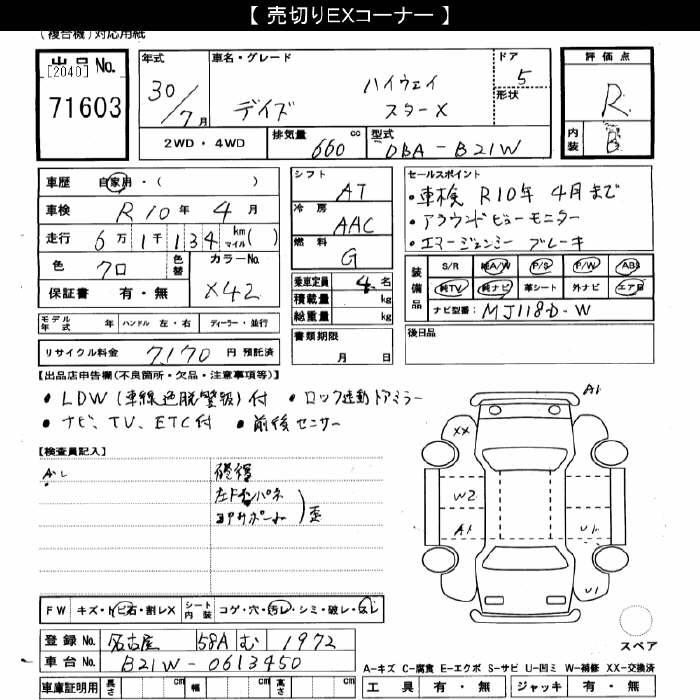 【 売切りEXコーナー 】
(複合機)対応用紙
出品 No.
[2040]
71603
年式
30/7月
車名・グレード
デイズ
ハイウェイ
スターX
ドア
5
形状
評価点
R
内装
B
2WD・4WD
排気量 660 cc
型式 DBA-B21W
車歴 自家用・( )
車検 R10年 4月
走行 6万1千134 km マイル( )
色 クロ
色替
カラーNo. X42
保証書 有・無
シフト AT
冷房 AAC
燃料 G
乗車定員 4名
積載量 kg
総重量 kg
書類期限
月 日
セールスポイント
・車検 R10年 4月まで
・アラウンドビューモニター
・エマージェンシー ブレーキ
装備品
S/R 純A/W P/S P/W ABS
純TV 純ナビ 革シート 外ナビ エア回
ナビ型番: MJ118D-W
後日品
モデル年式 年 ハンドル 左・右 ディーラー・並行
リサイクル料金 7,170 円 預託済
【出品店申告欄(不良箇所・欠品・注意事項等)】
・LDW(車線逸脱警報)付 ・ロック連動ドアミラー
・ナビ、TV、ETC付 ・前後センサー
【検査員記入】
修復
FW キズ・トビ石・割レX
シート内装 コゲ・穴・汚レ・シミ・破レ
登録 No. 名古屋 58A む 1972
車台 No. B21W-0613450
車庫証明用 長さ cm 幅 cm 高さ cm
A1
XX
W2
A1
U1
U1
スペア
A-キズ C-腐食 E-エクボ S-サビ U-凹ミ W-補修 XX-交換済
工具 有・無 ジャッキ 有・無